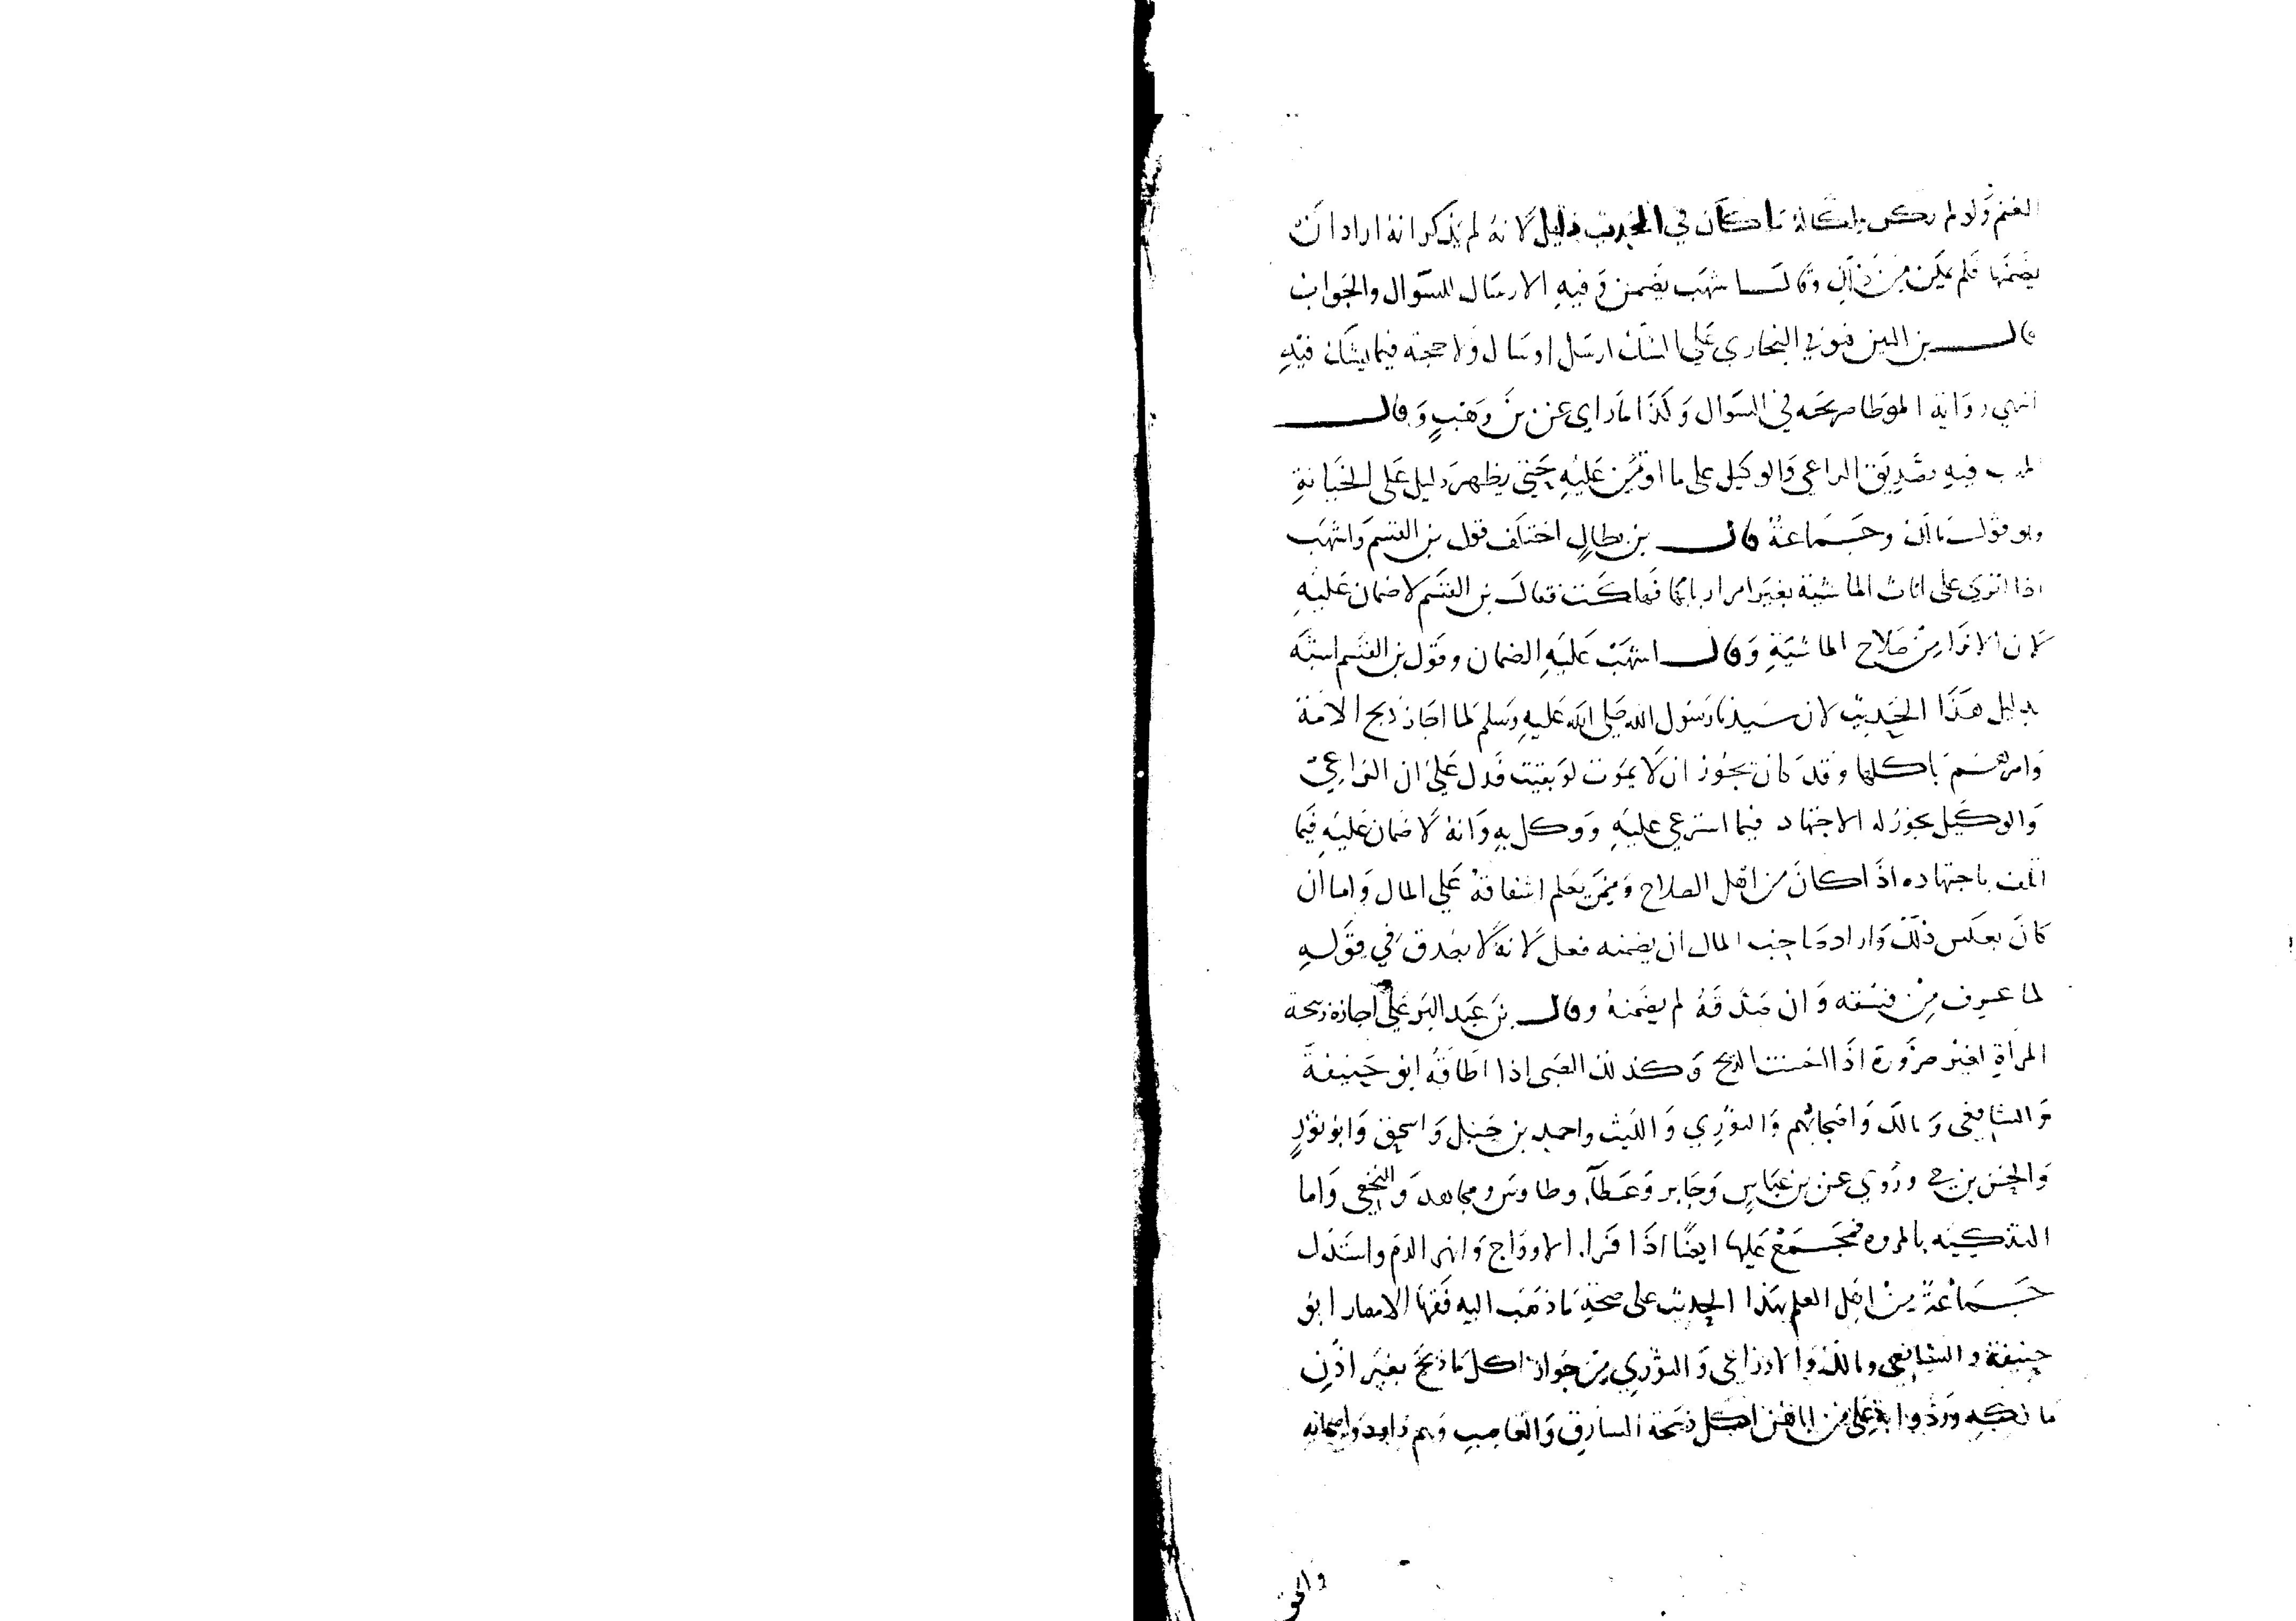 الغنم ولو لم يكن ما كان في الحديث دليل لانه لم يذكر انه اراد ان
يضمنها فلم يمكن من ذلك وقال اشهب يضمن وفيه الارسال للسوال والجواب
قال بن التين فنوي البخاري على الشك ارسل او سال ولا حجة فيما يشك فيه
انتهي رواية الموطا صريحه في السوال وكذا ما راي عن بن وهب وقال
المهلب فيه تصديق الراعي والوكيل على ما اوتمن عليه حتي يظهر دليل على الخيانة
وهو قول مالك وجماعة قال بن بطال اختلف قول بن القسم واشهب
اذا انزي على اناث الماشية بغير امر اربابها فهلكت فقال بن القسم لا ضمان عليه
لان الانزا من صلاح الماشية وقال اشهب عليه الضمان وقول بن القسم اشبه
بدليل هذا الحديث لان سيدنا رسول الله صلى الله عليه وسلم لما اجاز ذبح الامة
وامرهم باكلها وقد كان يجوز ان لا يموت لو بقيت فدل على ان الراعي
والوكيل يجوز له الاجتهاد فيما استرعي عليه ووكل به وانه لا ضمان عليه فيما
اتلف باجتهاده اذا كان من اهل الصلاح وممن يعلم اشفاقة على المال واما ان
كان بعكس ذلك واراد صاحب المال ان يضمنه فعل لانه لا يصدق في قوله
لما عرف من فسقه وان صدقه لم يضمنه وقال بن عبد البر على اجازة ذبيحة
المراة لغير ضرورة اذا احسنت الذبح وكذلك الصبي اذا اطاقه ابو حنيفة
والشافعي ومالك واصحابهم والثوري والليث واحمد بن حنبل واسحق وابو ثور
والحسن بن حي وروي عن بن عباس وجابر وعطآ وطاوس ومجاهد والنخعي واما
التذكيه بالمروه فمجتمع عليها ايضا اذا فرا الاوداج وانهر الدم واستدل
جماعة من اهل العلم بهذا الحديث على صحة ما ذهب اليه فقها الامصار ابو
حنيفة والشافعي ومالك والاوزاعي والثوري من جواز اكل ما ذبح بغير اذن
مالكه وردوا به على من ابا من اكل ذبيحة السارق والغاصب وهم داود واصحابه